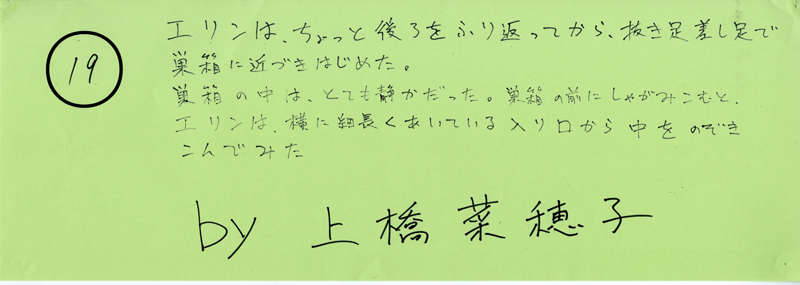 19
エリンは、ちょっと後ろをふり返ってから、抜き足差し足で
巣箱に近づきはじめた。
巣箱の中は、とても静かだった。巣箱の前にしゃがみこむと、
エリンは、横に細長くあいている入り口から中をのぞき
こんでみた
by 上橋菜穂子